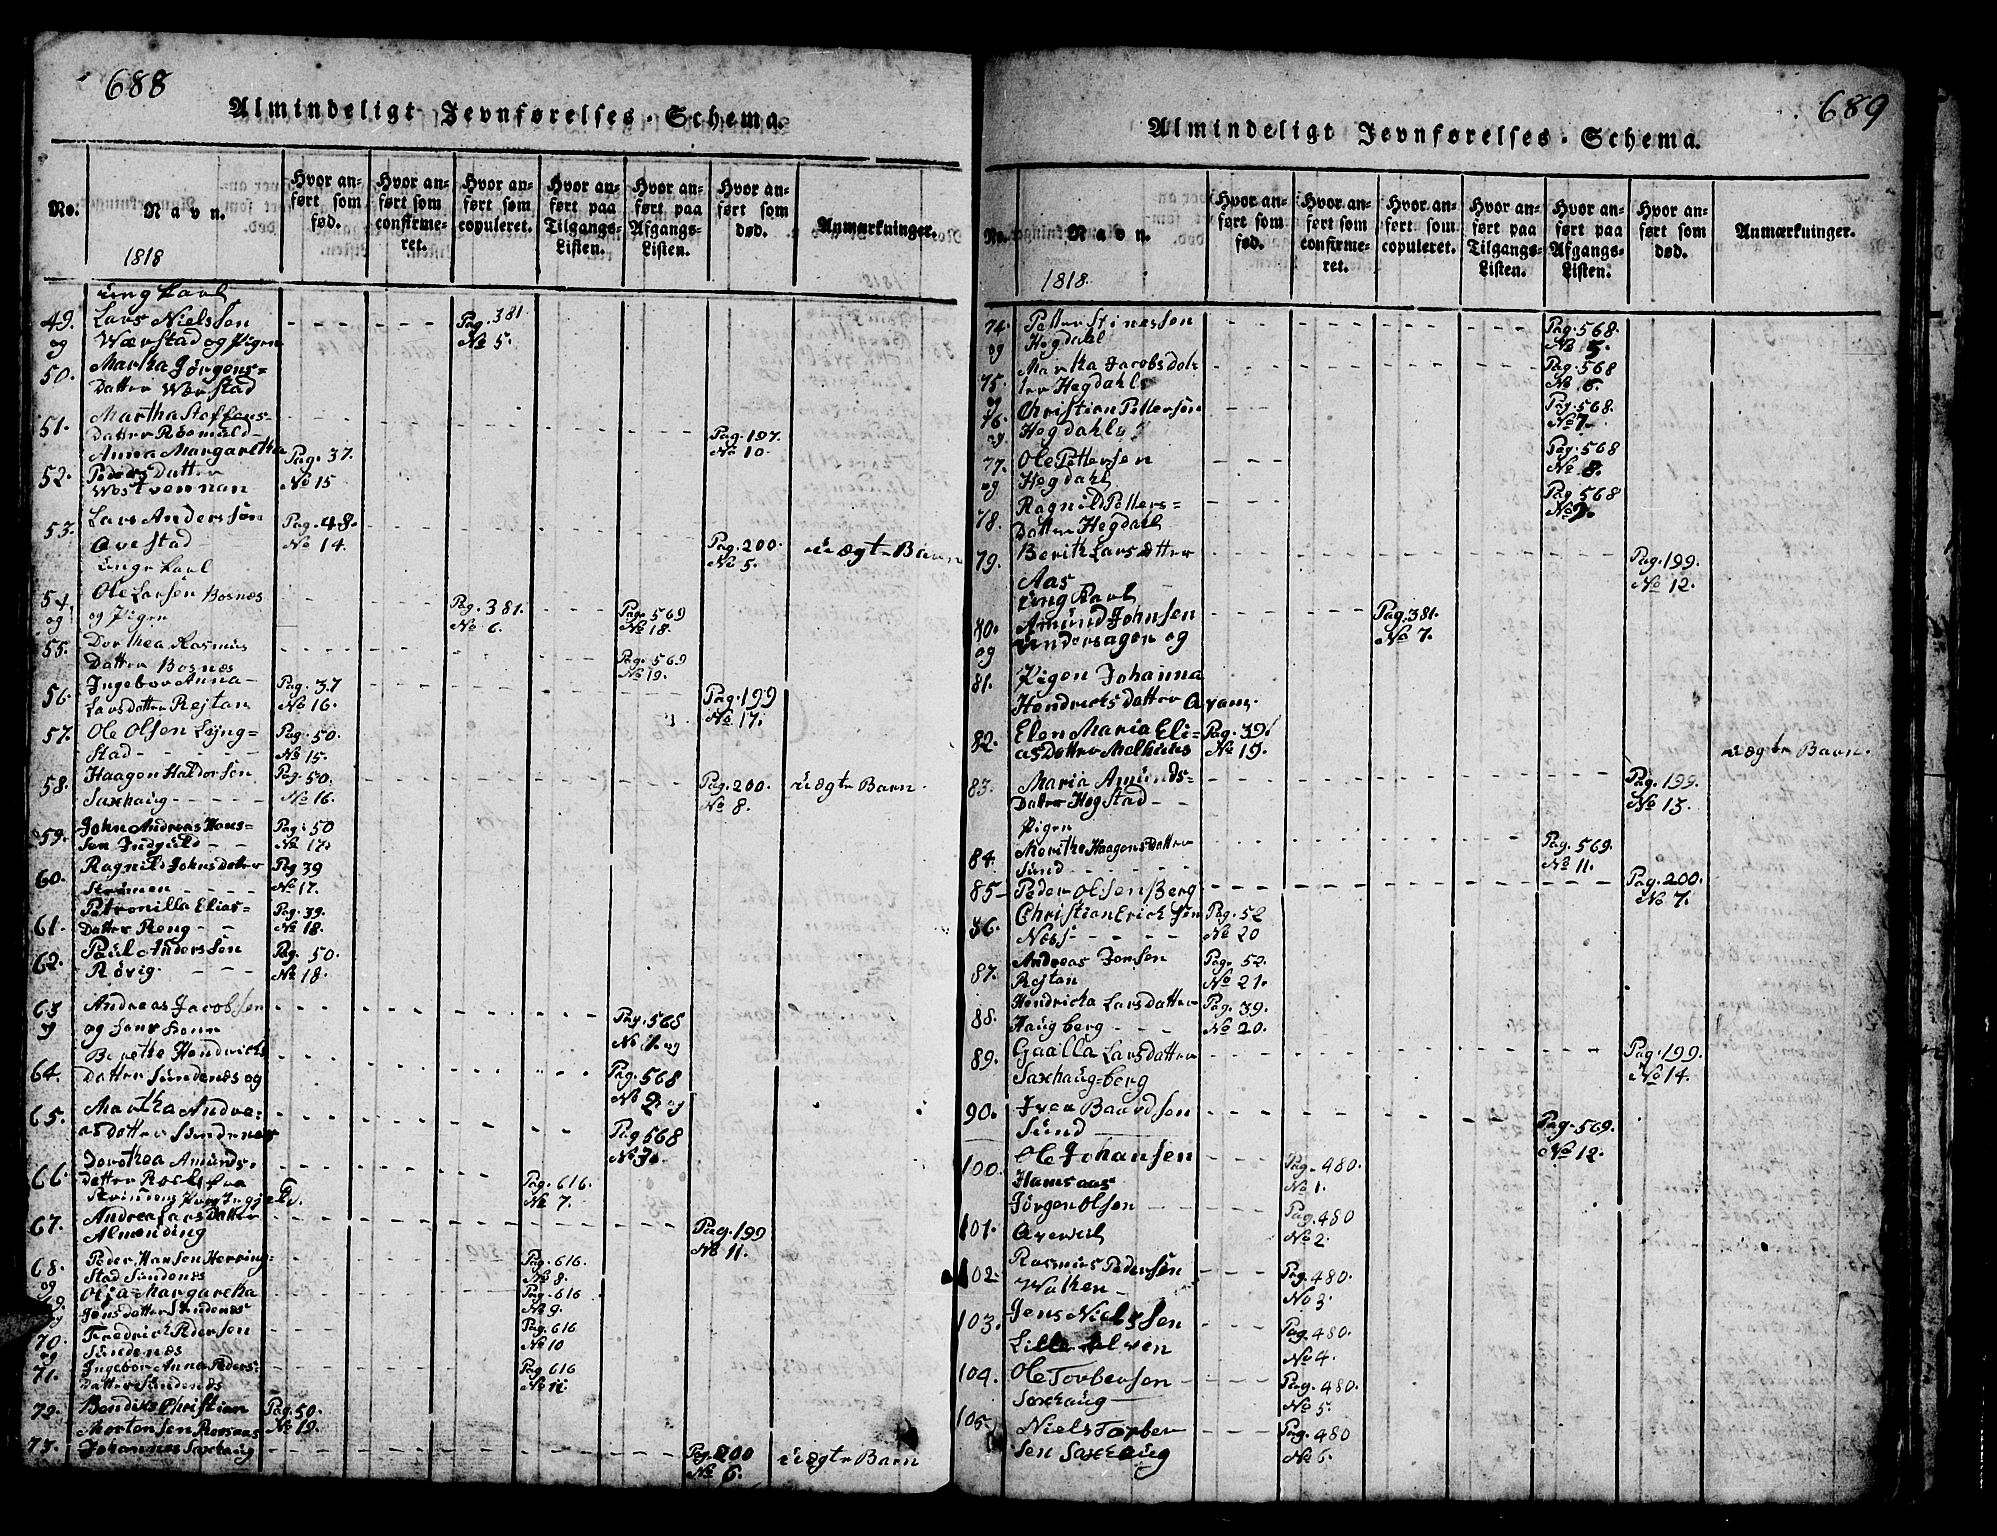 688
Almindeligt Jevnførelses-Schema.
No. Navn. Hvor anført som fød. Hvor anført som confirmeret. Hvor anført som copuleret. Hvor anført paa Tilgangs-Listen. Hvor anført paa Afgangs-Listen. Hvor anført som død. Anmærkninger.
1818
ung Karl
49. Lars Nielssen Pag. 381
og Wærstad og Pigen No 5.
50. Martha Jørgens-
Datter Wærstad
51. Martha Steffens-
Datter Pag. 197.
Anna Margaretha Pag. 37. No 10.
52. Peders Datter
No 15
53. Lars Anderssøn Pag. 48.
Avestad No 14. Pag. 200. uægte Barn
unge Karl No 5.
54. Ole Larsen Bosnes
og og Pigen Pag. 381. Pag. 569
No 6. No 18.
55. Dorthea Rasmus
Datter Bosnes Pag. 569
No 19.
56. Ingebor Anna Pag. 37
Larsdatter Rejtan No 16. Pag. 199
No 17.
57. Ole Olsen Lyng- Pag. 50.
stad No 15.
58. Haagen Haldorsen Pag. 50.
Saxhaug No 16. Pag. 200. uægte Barn
No 8.
59. John Andreas Hans- Pag. 50
sen No 17.
60. Ragnild Johnsdatter Pag 39
Strømen No 17.
Petronilla Elias- Pag. 39.
61. Datter Reng No 18.
62. Paul Anderssøn Pag. 50.
Røvig No 18.
63 Andreas Jacobsen
og og Pag. 568
No 1. og
Berethe Hendrichs
64. Datter Sundenæs og Pag. 568
No 2 og
65. Martha Andre-
asdatter Sundenæs Pag 568
No 3.
Dorothea Amunds-
66. Datter Pag. 616.
No 7.
67. Andrea Lars Datter
Almending Pag. 199
No 11.
68. Peder Hansen Herring- Pag. 616
og stad Sundenæs No 8.
69. Olja Margaretha Pag. 616
og Jens datter Sundenæs No 9.
70. Fredrich Pedersen Pag. 616
og Sundenæs No 10
71. Ingebor Anna Peders- Pag 616
Datter Sundenæs No 11.
72. Bendix Christian Pag. 50.
Mortensen No 19.
73. Johannes Saxhaug Pag. 200 uægte Barn
No 6.
689
Almindeligt Jevnførelses-Schema.
No. Navn. Hvor anført som fød. Hvor anført som confirmeret. Hvor anført som copuleret. Hvor anført paa Tilgangs-Listen. Hvor anført paa Afgangs-Listen. Hvor anført som død. Anmærkninger.
1818.
74. Petter Stinessen Pag. 568.
og Hegdahl No 5.
75. Martha Jacobsdot- Pag. 568
og ter Hegdahl No 6.
76. Christian Pettersen Pag. 568.
og Hegdahl No 7.
77. Ole Pettersen Pag. 568
og Hegdahl No 8.
78. Ragnild Petters- Pag. 568
Datter Hegdahl No 9.
79. Berith Larsdatter Pag. 199.
Aas No 12.
ung Karl
80. Amund Johnsen Pag. 381.
og og No 7.
81. Pigen Johanna
Hendrichs datter
82. Elen Maria Eli- Pag. 39.
asDatter Melhuus No 19. uægte Barn.
83. Maria Amunds- Pag. 199.
Datter Hegstad No 13.
Pigen
84. Merithe Haagensdatter Pag. 569.
Sund No 11.
85 Peder Olsen Berg Pag. 200.
No 7.
86. Christian Ericksøn Pag. 52
Næss No 20
87. Andreas Jonsen Pag. 52.
Rejtan No 21.
88. Hendricka Larsdatter Pag. 39.
Haugberg No 20.
89. Gaalla Larsdatter Pag. 199.
Saxhaug-berg No 14.
90. Iver Baardsen Pag. 569.
Sund No 12.
100. Ole Johansen Pag. 480.
Hamsaas No 1.
101. Jørgen Olsen Pag. 480
No 2.
102 Rasmus Pedersen Pag. 480.
No 3.
103. Jens Nielssen Pag. 480.
Lille No 4.
104. Ole Torbersen Pag. 480.
Saxhaug No 5.
105. Niels Torber Pag. 480
sen Saxhaug No 6.